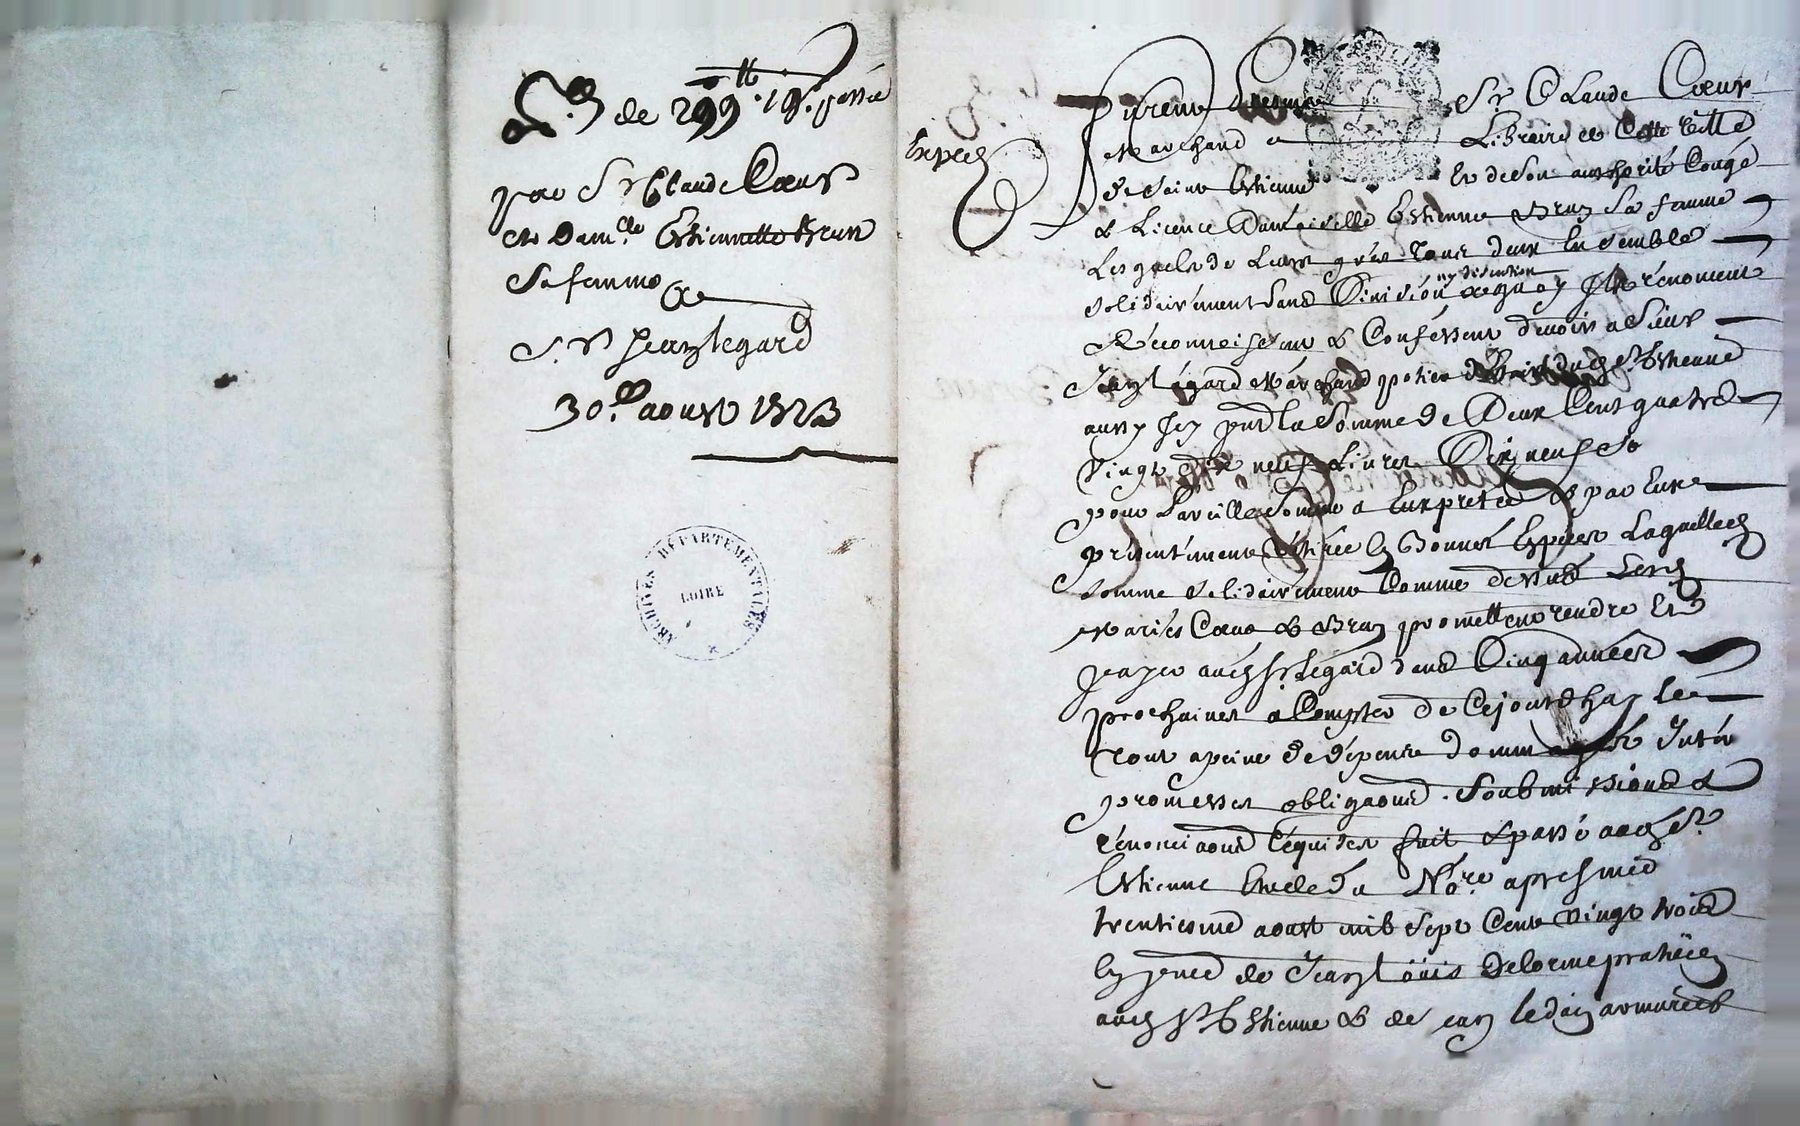 de 299 ₶ 19 s. passée
par Sr Claude Coeur
et Dam.lle Estiennette Brun
Sa femme &
Sr Jean Legard
30e aoust 1723
ARCHIVES DÉPARTEMENTALES
LOIRE
Exped
Furent Sr Claude Coeur
Marchand Libraire de Cette ville
de Saint Estienne Et de son authorité Congé
& Licence Damoiselle Estienne Brun Sa femme
Lesquels de Leurs grés Tous deux Ensemble
ny discution
Solidairement sans Division
Reconnoissent & Confessent devoir a Sieur
Jean Legard Marchand potier St Estienne
la Somme de Deux Cent quatre
Vingt dix neuf Livres Dix neuf so
pour Pareille Somme a Eux pretée & par Eux
présentement retirée en Bonnes Espèces Laquelle
Somme Solidairement Comme dessus Lesd
mariés Coeur & Brun promettent rendre Et
payer aud Sr Legard dans Cinq années
prochaines a Compter de Cejourdhuy Le
Tout a peine de dépens dommages Intér
promesses obligaons. Soubmissions &
rénonciaons requises fait & passé aud St
Estienne No.re apres midi
trentiesme aoust mil Sept Cent vingt trois
En pnce de Jean Louis Delorme praticien
aud St Estienne & de Jean armurier